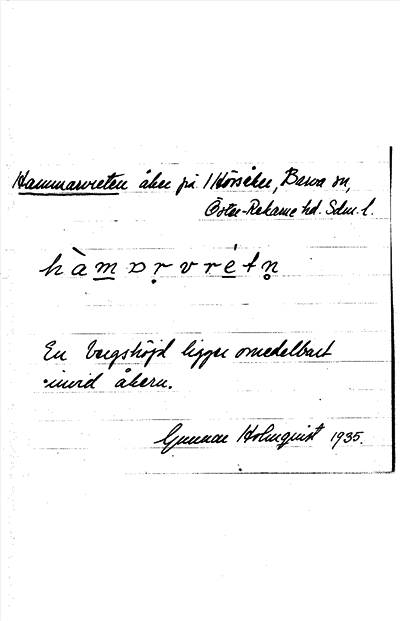 Hammarvreten åker på Hörsåker, Barva sn,
Öster-Rekarne hd. Sdm. l.
hàmɒrvrétn̥
En bergshöjd ligger omedelbart
invid åkern.
Gunnar Holmquist 1935.